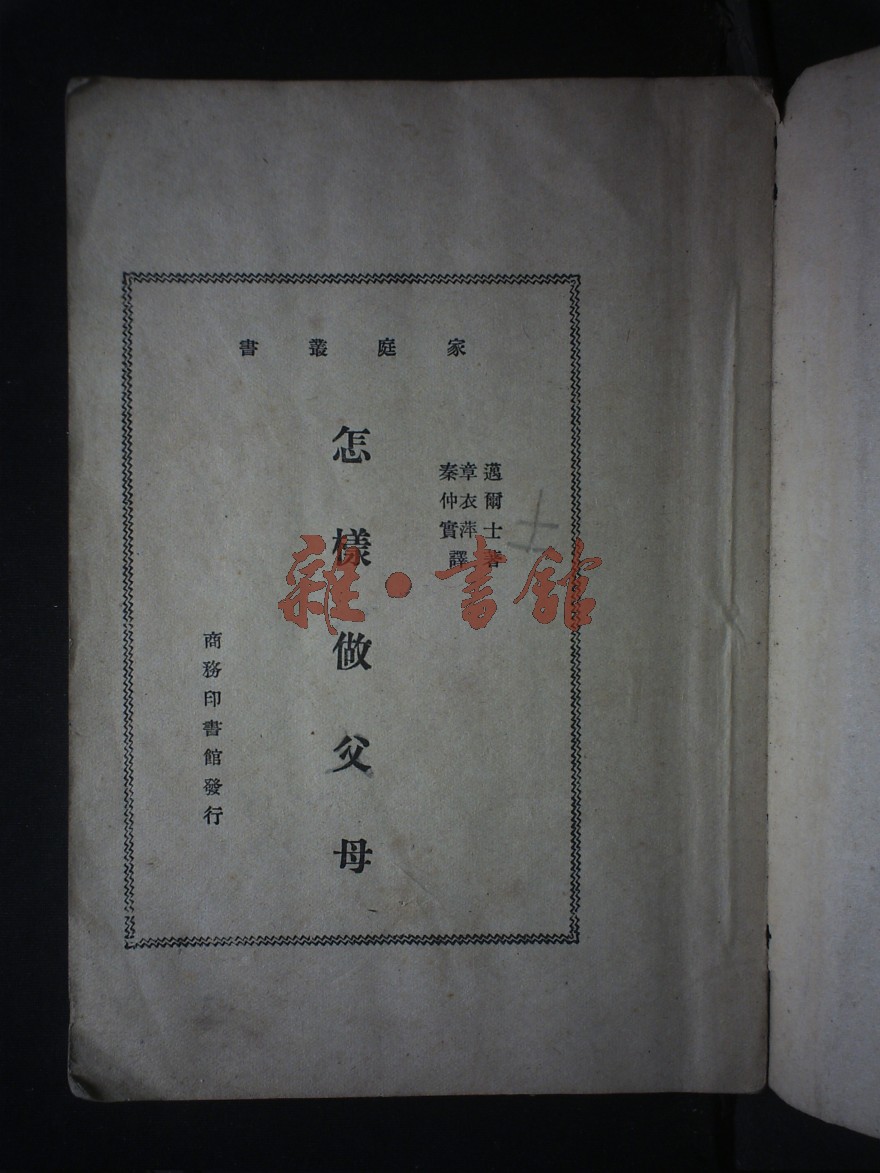 家庭叢書
邁爾士著
章衣萍
秦仲實
譯
怎樣做父母
商務印書館發行
雜·書館